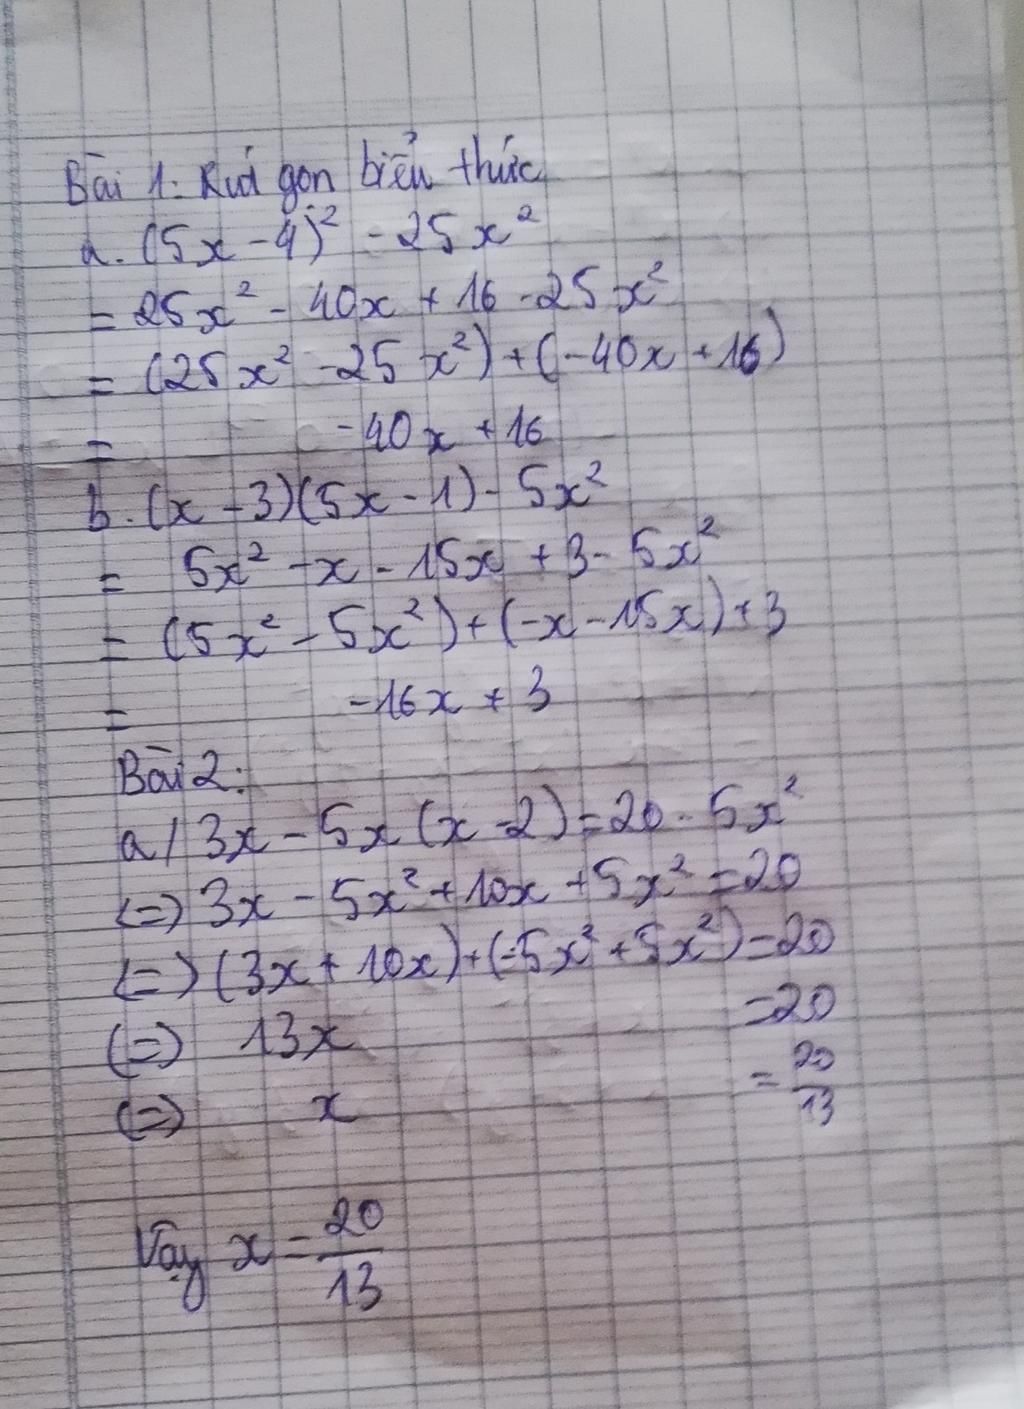 Bài 1: Rút gọn biểu thức
a. (5x - 4)² - 25x²
= 25x² - 40x + 16 - 25x²
= (25x² - 25x²) + (-40x + 16)
= -40x + 16
b. (x - 3)(5x - 1) - 5x²
= 5x² - x - 15x + 3 - 5x²
= (5x² - 5x²) + (-x - 15x) + 3
= -16x + 3
Bài 2:
a/ 3x - 5x (x - 2) = 20 - 5x²
(=) 3x - 5x² + 10x + 5x² = 20
(=) (3x + 10x) + (-5x² + 5x²) = 20
(=) 13x = 20
(=) x = 20/13
Vậy x = 20/13